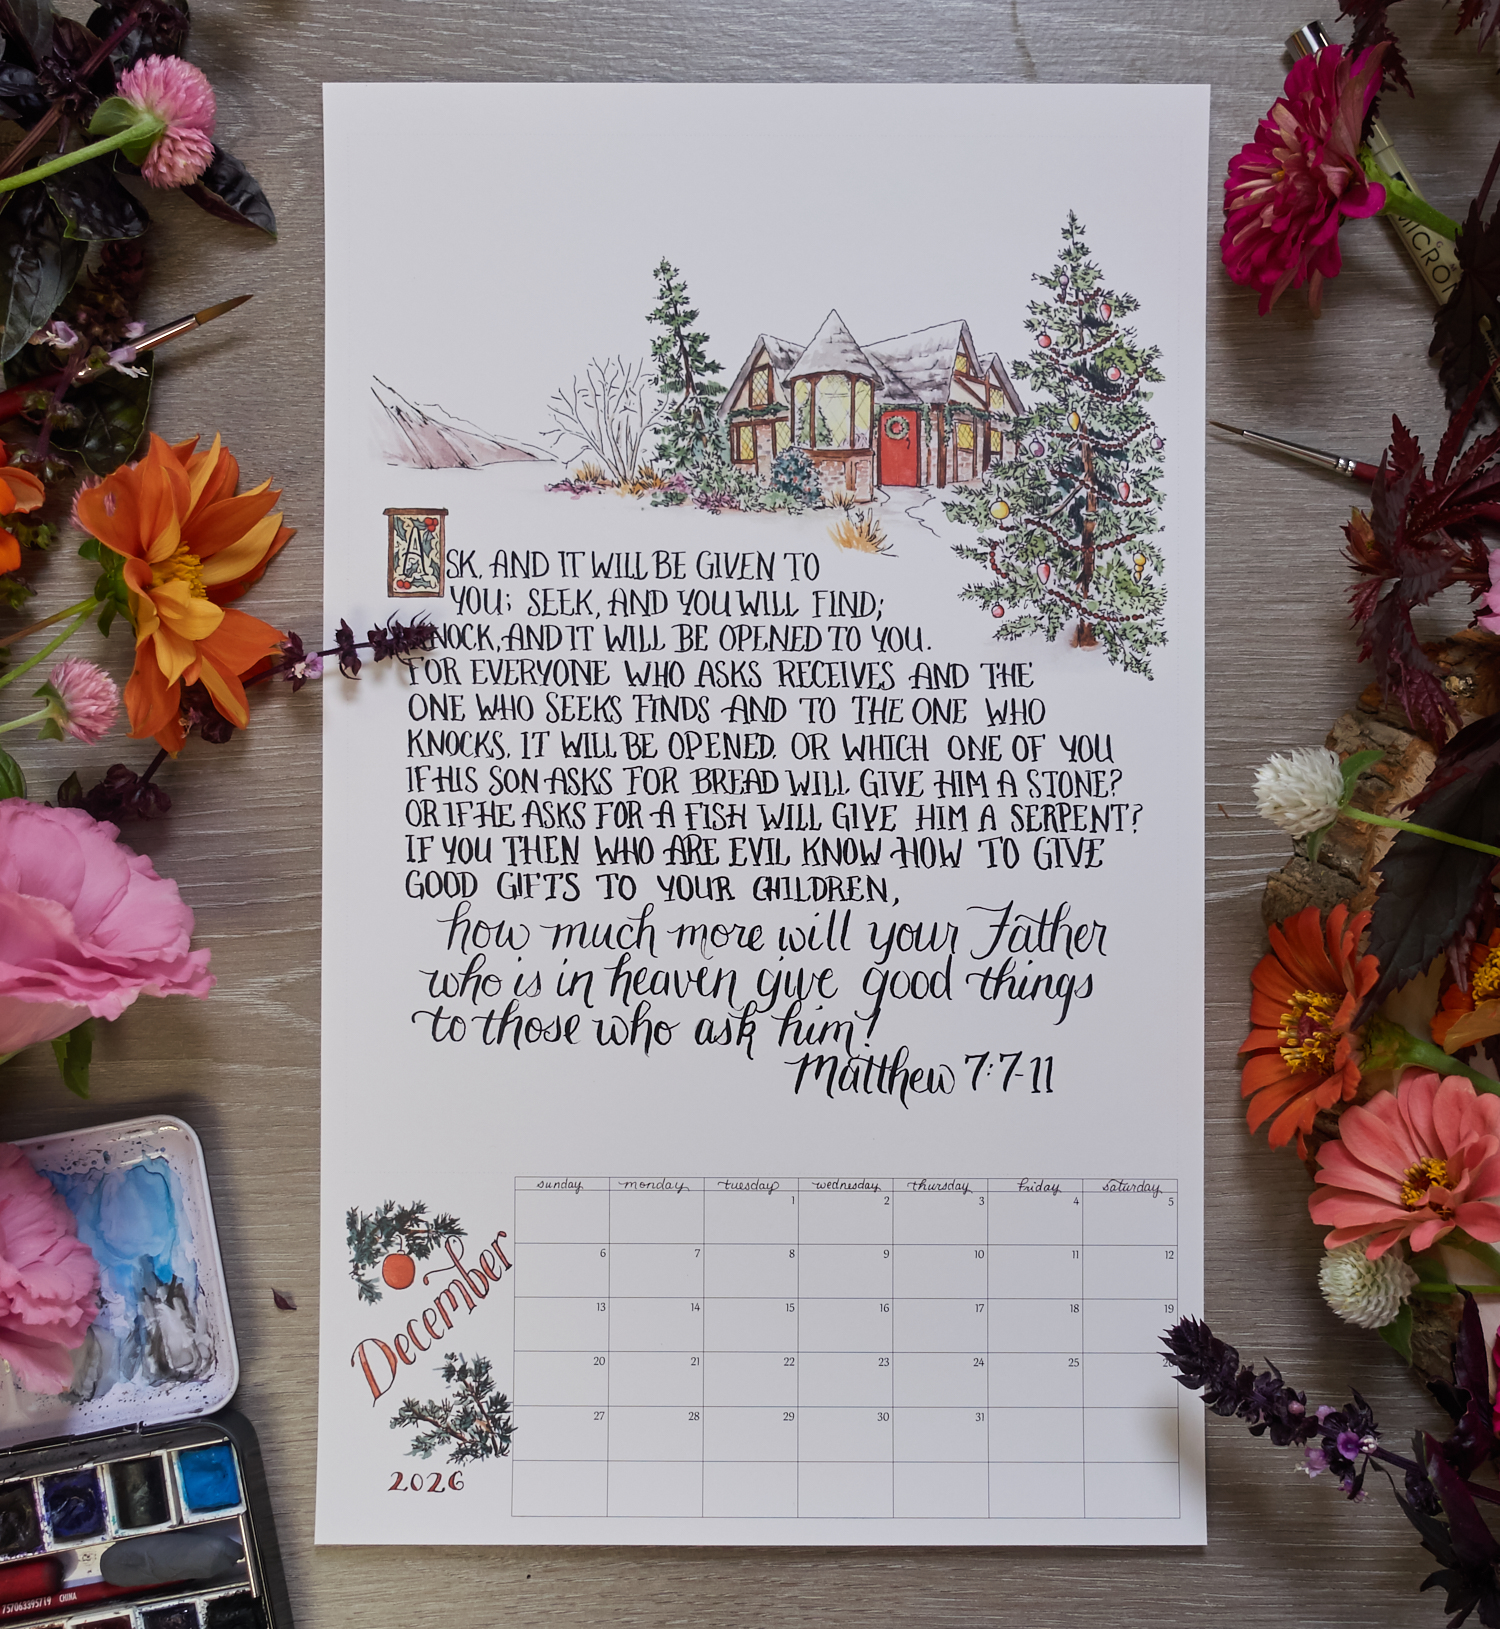 MICRON
ASK, AND IT WILL BE GIVEN TO
YOU; SEEK, AND YOU WILL FIND;
KNOCK, AND IT WILL BE OPENED TO YOU.
FOR EVERYONE WHO ASKS RECEIVES AND THE
ONE WHO SEEKS FINDS AND TO THE ONE WHO
KNOCKS, IT WILL BE OPENED. OR WHICH ONE OF YOU
IF HIS SON ASKS FOR BREAD WILL GIVE HIM A STONE?
OR IF HE ASKS FOR A FISH WILL GIVE HIM A SERPENT?
IF YOU THEN WHO ARE EVIL KNOW HOW TO GIVE
GOOD GIFTS TO YOUR CHILDREN,
how much more will your Father
who is in heaven give good things
to those who ask him!
Matthew 7:7-11
December
2026
sunday monday tuesday wednesday thursday friday saturday
1 2 3 4 5
6 7 8 9 10 11 12
13 14 15 16 17 18 19
20 21 22 23 24 25 26
27 28 29 30 31
757063395/19 CHINA